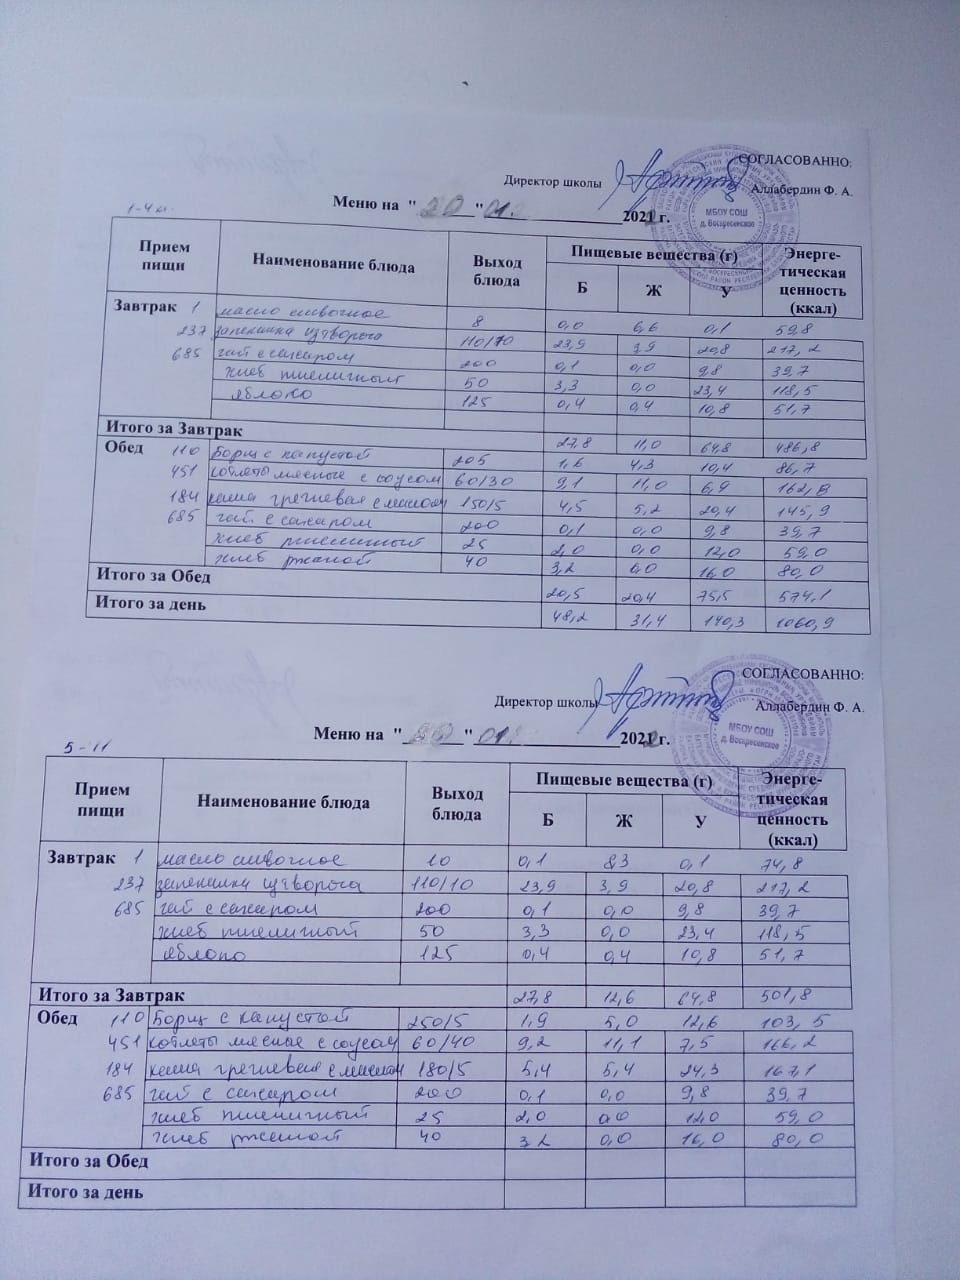 СОГЛАСОВАННО:
Директор школы Аллабердин Ф. А.
1-4 кл.
Меню на "20" 01. 2022 г.
МБОУ СОШ
д. Воскресенское
Прием пищи Наименование блюда Выход блюда Пищевые вещества (г) Энерге-тическая ценность (ккал)
Б Ж У
Завтрак 1 масло сливочное 8 0,0 6,6 0,1 59,8
237 запеканка из творога 110/70 23,9 3,9 20,8 217,2
685 чай с сахаром 200 0,1 0,0 9,8 39,7
хлеб пшеничный 50 3,3 0,0 23,4 118,5
яблоко 125 0,4 0,4 10,8 51,7
Итого за Завтрак 27,8 11,0 64,8 486,8
Обед 110 Борщ с капустой 205 1,6 4,3 10,4 86,7
451 котлеты мясные с соусом 60/30 9,1 11,0 6,9 162,8
184 каша гречневая с маслом 150/5 4,5 5,2 20,4 145,9
685 чай с сахаром 200 0,1 0,0 9,8 39,7
хлеб пшеничный 25 2,0 0,0 12,0 59,0
хлеб ржаной 40 3,2 0,0 16,0 80,0
Итого за Обед 20,5 20,4 75,5 574,1
Итого за день 48,2 31,4 140,3 1060,9
СОГЛАСОВАННО:
Директор школы Аллабердин Ф. А.
5-11
Меню на "20" 01. 2022 г.
МБОУ СОШ
д. Воскресенское
Прием пищи Наименование блюда Выход блюда Пищевые вещества (г) Энерге-тическая ценность (ккал)
Б Ж У
Завтрак 1 масло сливочное 10 0,1 8,3 0,1 74,8
237 запеканка из творога 110/10 23,9 3,9 20,8 217,2
685 чай с сахаром 200 0,1 0,0 9,8 39,7
хлеб пшеничный 50 3,3 0,0 23,4 118,5
яблоко 125 0,4 0,4 10,8 51,7
Итого за Завтрак 27,8 12,6 64,8 501,8
Обед 110 Борщ с капустой 250/5 1,9 5,0 12,6 103,5
451 котлеты мясные с соусом 60/40 9,2 11,1 7,5 166,2
184 каша гречневая с маслом 180/5 5,4 5,4 24,3 167,1
685 чай с сахаром 200 0,1 0,0 9,8 39,7
хлеб пшеничный 25 2,0 0,0 12,0 59,0
хлеб ржаной 40 3,2 0,0 16,0 80,0
Итого за Обед
Итого за день